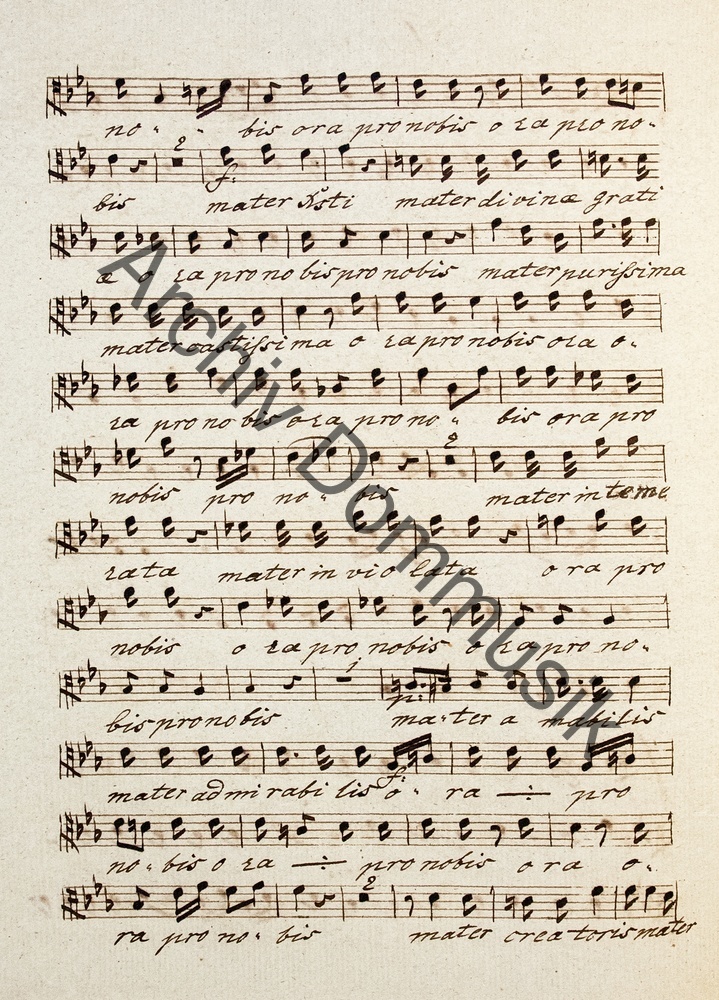 no - - bis ora pro nobis o ra pro no -
2
f:
bis mater Xsti mater divinæ grati
æ o ra pro no bis pro nobis mater purissima
mater castissima o ra pro nobis ora o -
ra pro no bis o ra pro no - bis ora pro
2
nobis pro no - bis mater in teme
rata mater in vio lata ora pro
nobis o ra pro nobis o ra pro no -
1
p:
bis pro nobis ma - ter a mabilis
f:
mater admirabi lis o - ra ÷ pro
no - bis o ra ÷ pro nobis ora o -
2
ra pro no - bis mater creatoris mater
Archiv Dommusik